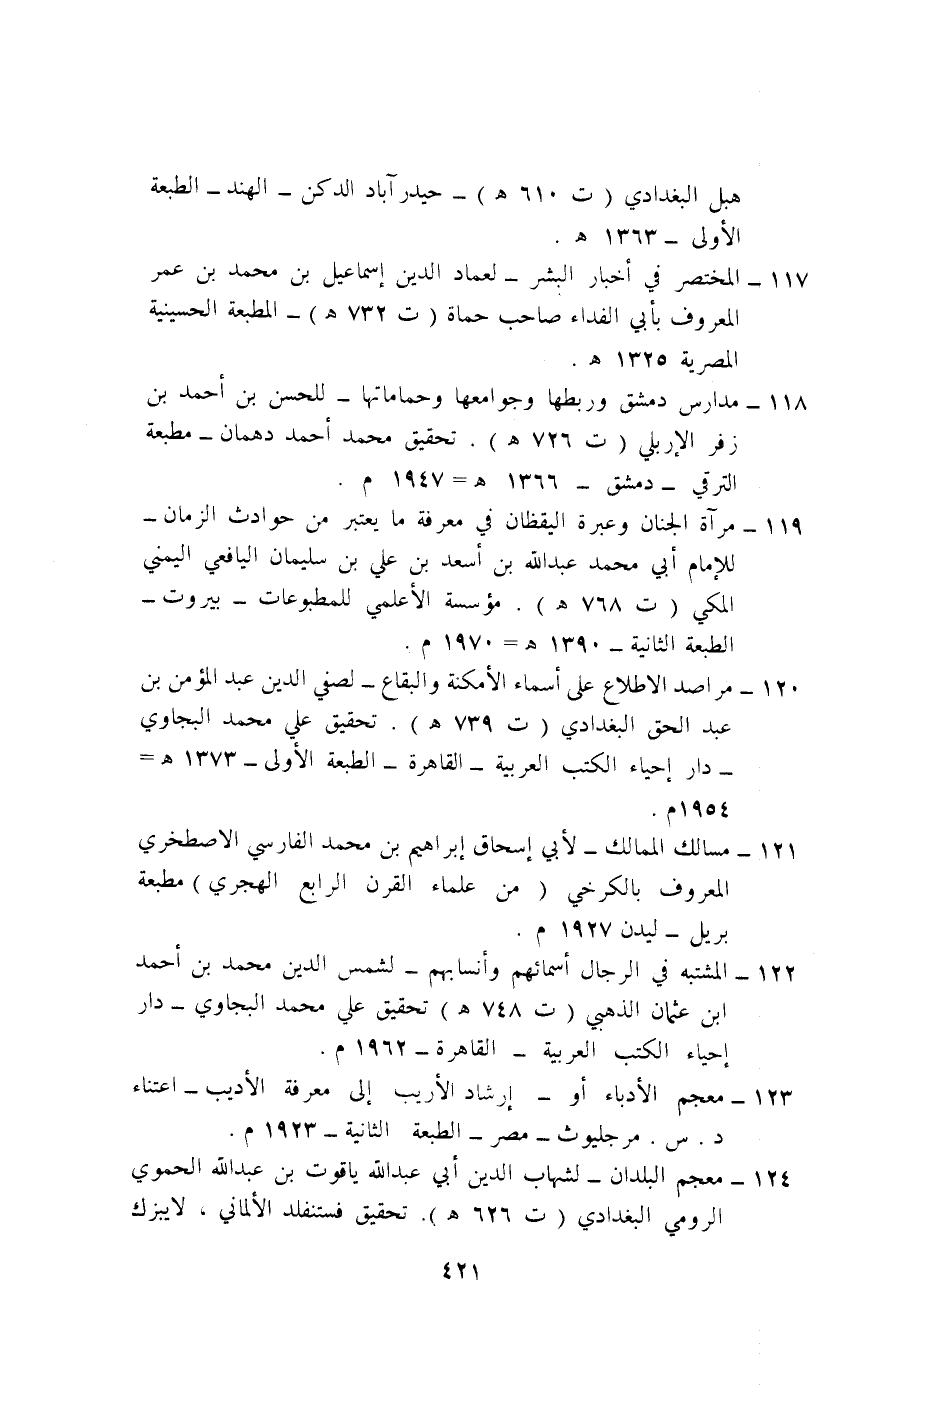 هبل البغدادي ( ت ٦١٠ ه ) ــ حيدر آباد الدكن ــ الهند ــ الطبعة
الأولى ــ ١٣٦٣ ه .
١١٧ ــ المختصر في أخبار البشر ــ لعماد الدين إسماعيل بن محمد بن عمر
المعروف بأبي الفداء صاحب حماة ( ت ٧٣٢ ه ) ــ المطبعة الحسينية
المصرية ١٣٢٥ ه .
١١٨ ــ مدارس دمشق وربطها وجوامعها وحماماتها ــ للحسن بن أحمد بن
زفر الإربلي ( ت ٧٢٦ ه ) . تحقيق محمد أحمد دهمان ــ مطبعة
الترقي ــ دمشق ــ ١٣٦٦ ه = ١٩٤٧ م .
١١٩ ــ مرآة الجنان وعبرة اليقظان في معرفة ما يعتبر من حوادث الزمان ــ
للإمام أبي محمد عبدالله بن أسعد بن علي بن سليمان اليافعي اليمني
المكي ( ت ٧٦٨ ه ) . مؤسسة الأعلمي للمطبوعات ــ بيروت ــ
الطبعة الثانية ــ ١٣٩٠ ه = ١٩٧٠ م .
١٢٠ ــ مراصد الاطلاع على أسماء الأمكنة والبقاع ــ لصفي الدين عبد المؤمن بن
عبد الحق البغدادي ( ت ٧٣٩ ه ) . تحقيق علي محمد البجاوي
ــ دار إحياء الكتب العربية ــ القاهرة ــ الطبعة الأولى ــ ١٣٧٣ ه =
١٩٥٤م .
١٢١ ــ مسالك الممالك ــ لأبي إسحاق إبراهيم بن محمد الفارسي الاصطخري
المعروف بالكرخي ( من علماء القرن الرابع الهجري ) مطبعة
بريل ــ ليدن ١٩٢٧ م .
١٢٢ ــ المشتبه في الرجال أسمائهم وأنسابهم ــ لشمس الدين محمد بن أحمد
ابن عثمان الذهبي ( ت ٧٤٨ ه ) تحقيق علي محمد البجاوي ــ دار
إحياء الكتب العربية ــ القاهرة ــ ١٩٦٢ م .
١٢٣ ــ معجم الأدباء أو ــ إرشاد الأريب إلى معرفة الأديب ــ اعتناء
د . س . مرجليوث ــ مصر ــ الطبعة الثانية ــ ١٩٢٣ م .
١٢٤ ــ معجم البلدان ــ لشهاب الدين أبي عبدالله ياقوت بن عبدالله الحموي
الرومي البغدادي ( ت ٦٢٦ ه ). تحقيق فستنفلد الألماني ، لايبزك
٤٢١